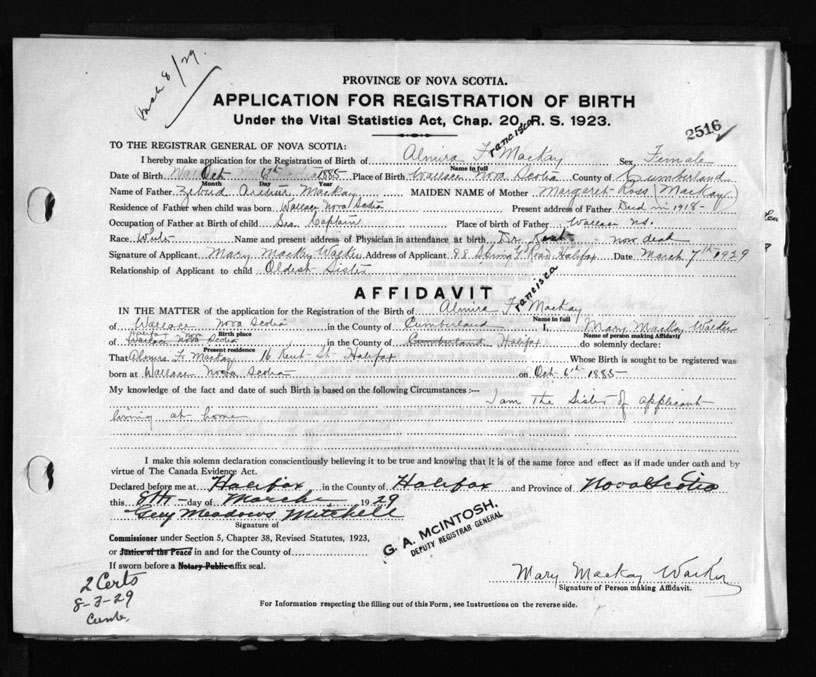 March 8/29.
PROVINCE OF NOVA SCOTIA.
APPLICATION FOR REGISTRATION OF BIRTH
Under the Vital Statistics Act, Chap. 20, R. S. 1923.
2516
TO THE REGISTRAR GENERAL OF NOVA SCOTIA:
I hereby make application for the Registration of Birth of Almira Francisca Mackay Sex Female
Name in full
Date of Birth Oct 6th 1885 Place of Birth Wallace Nova Scotia County of Cumberland
Month Day Year
Name of Father Zebud Arthur Mackay MAIDEN NAME of Mother Margaret Ross (Mackay)
Residence of Father when child was born Wallace Nova Scotia Present address of Father Died in 1918-
Occupation of Father at Birth of child Sea Captain Place of birth of Father Wallace N.S.
Race White Name and present address of Physician in attendance at birth Dr. now dead
Signature of Applicant Mary Mackay Walker Address of Applicant 98 Spring G. Road Halifax Date March 7th 1929
Relationship of Applicant to child Oldest Sister
AFFIDAVIT
IN THE MATTER of the application for the Registration of the Birth of Almira Francisca Mackay
Name in full
of Wallace Nova Scotia in the County of Cumberland I, Mary Mackay Walker
Birth place Name of person making Affidavit
Halifax Nova Scotia
of Wallace Nova Scotia in the County of Cumberland Halifax do solemnly declare:
Present residence
That Almira F. Mackay 16 Kent St Halifax Whose Birth is sought to be registered was
born at Wallace Nova Scotia on Oct 6th 1885
My knowledge of the fact and date of such Birth is based on the following Circumstances :—
I am the Sister of applicant
living at home
I make this solemn declaration conscientiously believing it to be true and knowing that it is of the same force and effect as if made under oath and by
virtue of The Canada Evidence Act.
Declared before me at Halifax in the County of Halifax and Province of Nova Scotia
this 8th day of March 1929
Guy Meadows Mitchell
Signature of
Commissioner under Section 5, Chapter 38, Revised Statutes, 1923,
or Justice of the Peace in and for the County of
If sworn before a Notary Public affix seal.
G. A. McINTOSH,
DEPUTY REGISTRAR GENERAL
2 Certs
8-3-29
Cumb.
Mary Mackay Walker
Signature of Person making Affidavit.
For Information respecting the filling out of this Form, see Instructions on the reverse side.